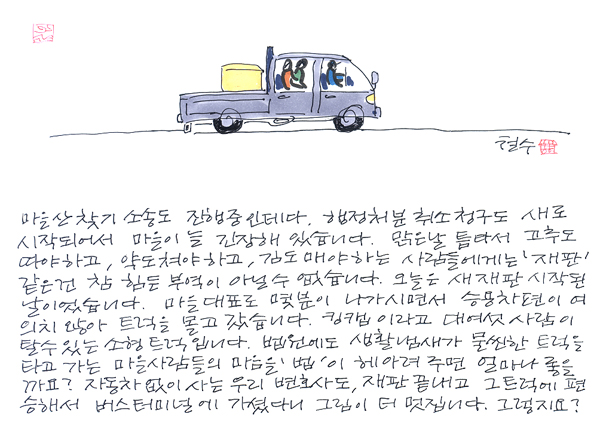 철수
마을산 찾기 소송도 진행중인데다, 행정처분 취소청구도 새로
시작되어서 마을이 늘 긴장해 있습니다. 맑은날 틈타서 고추도
따야하고, 약도쳐야하고, 김도 매야하는 사람들에게는 '재판'
같은건 참 힘든 부역이 아닐 수 없습니다. 오늘은 새재판 시작된
날이었습니다. 마을대표로 몇분이 나가시면서 승용차편이 여
의치 않아 트럭을 몰고 갔습니다. 킹캡이라고 대여섯 사람이
탈수있는 소형트럭입니다. 법원에도 생활냄새가 물씬한 트럭을
타고 가는 마을사람들의 마음을 '법'이 헤아려 주면 얼마나 좋을
까요? 자동차없이 사는 우리 변호사도, 재판 끝내고 그트럭에 편
승해서 버스터미널에 가셨다니 그림이 더 멋집니다. 그렇지요?